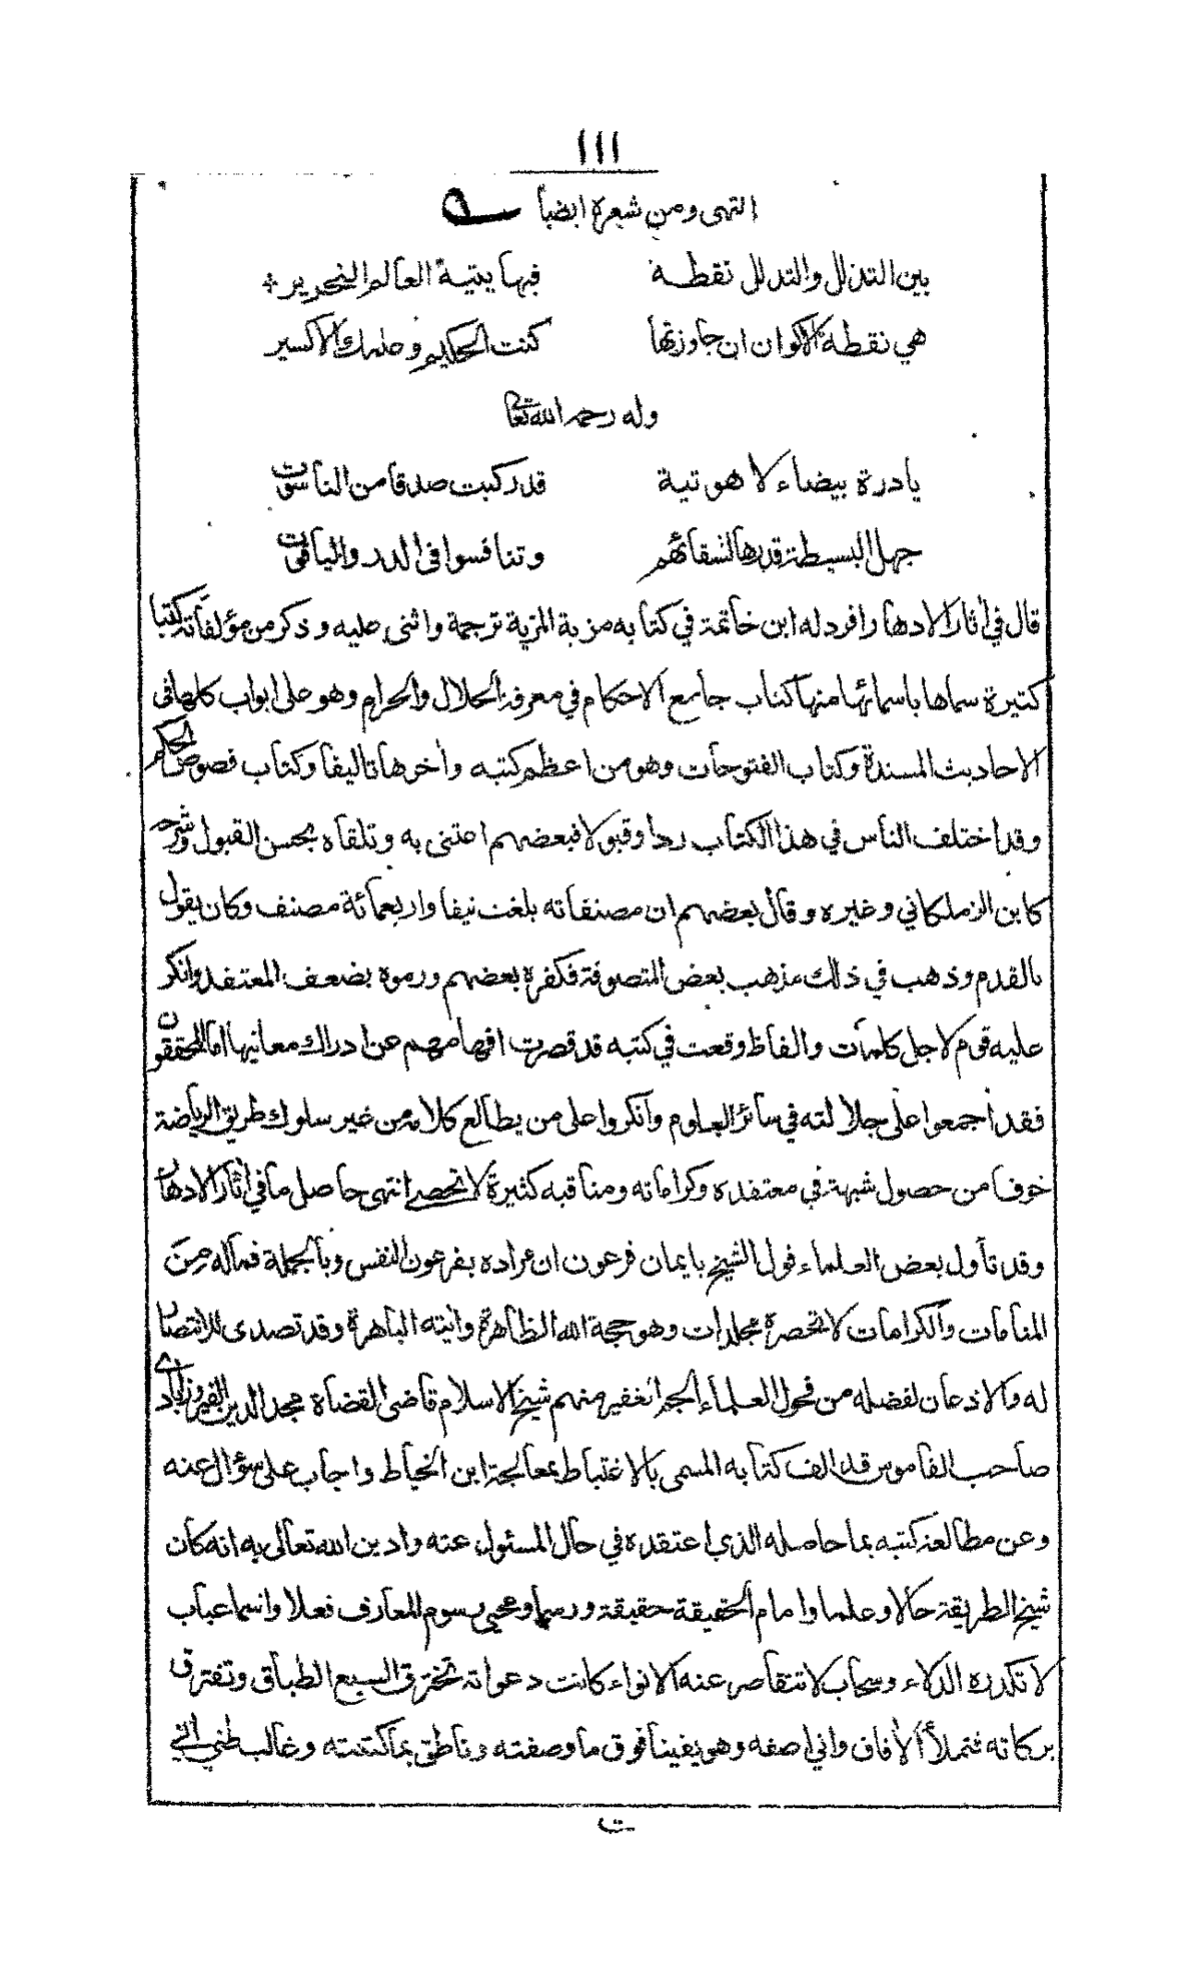 ١١١
انتهى ومن شعره ايضا
بين التذلل والتدلل نقطة فيها يتيه العالم النحرير
هي نقطة الاكوان ان جاوزتها كنت الحكيم وعلمك الاكسير
وله رحمه الله تعالى
يا درة بيضاء لاهوتية قد ركبت صدفا من الناسوت
جهل البسيطة قدرها لشقائهم وتنافسوا في الدر والياقوت
قال في آثار الادهار افرد له ابن خاتمة في كتابه مزية المزية ترجمة واثنى عليه وذكر من مؤلفاته كتبا
كثيرة سماها باسمائها منها كتاب جامع الاحكام في معرفة الحلال والحرام وهو على ابواب كلها في
الاحاديث المسندة وكتاب الفتوحات وهو من اعظم كتبه وآخرها تاليفا وكتاب فصوص الحكم
وقد اختلف الناس في هذا الكتاب ردا وقبولا فبعضهم اعتنى به وتلقاه بحسن القبول وشرحه
كابن الزملكاني وغيره وقال بعضهم ان مصنفاته بلغت نيفا واربعمائة مصنف وكان يقول
بالقدم وذهب في ذلك مذهب بعض المتصوفة فكفره بعضهم ورموه بضعف المعتقد وانكر
عليه قوم لاجل كلمات والفاظ وقعت في كتبه قد قصرت افهامهم عن ادراك معانيها اما المحققون
فقد اجمعوا على جلالته في سائر العلوم وانكروا على من يطالع كلامه من غير سلوك طريق الرياضة
خوفا من حصول شبهة في معتقده وكراماته ومناقبه كثيرة لا تحصى انتهى حاصل ما في آثار الادهار
وقد تأول بعض العلماء قول الشيخ بايمان فرعون ان مراده بفرعون النفس وبالجملة فماله من
المنامات والكرامات لا تحصره مجلدات وهو حجة الله الظاهرة وآيته الباهرة وقد تصدى للانتصار
له والاذعان لفضله من فحول العلماء الجم الغفير منهم شيخ الاسلام قاضي القضاة مجد الدين الفيروزابادي
صاحب القاموس قد الف كتابه المسمى بالاغتباط بمعالجة ابن الخياط واجاب على سؤال عنه
وعن مطالعة كتبه بما حاصله الذي اعتقده في حال المسئول عنه وادين الله تعالى به انه كان
شيخ الطريقة حالا وعلما وامام الحقيقة حقيقة ورسما ومحيي رسوم المعارف فعلا واسما عباب
لا تكدره الدلاء وسحاب لا تتقاصر عنه الانواء كانت دعواته تخترق السبع الطباق وتفترق
بركاته فتملأ الآفاق واني اصفه وهو يقينا فوق ما وصفته وناطق بما كتبته وغالب ظني اني